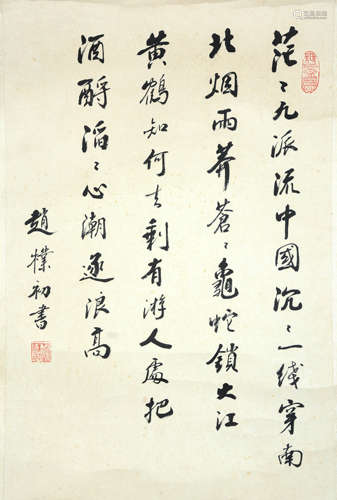 茫〻九派流中國沉〻一綫穿南
北烟雨莽蒼〻龜蛇鎖大江
黄鶴知何去剩有游人處把
酒酹滔〻心潮逐浪高
趙樸初書